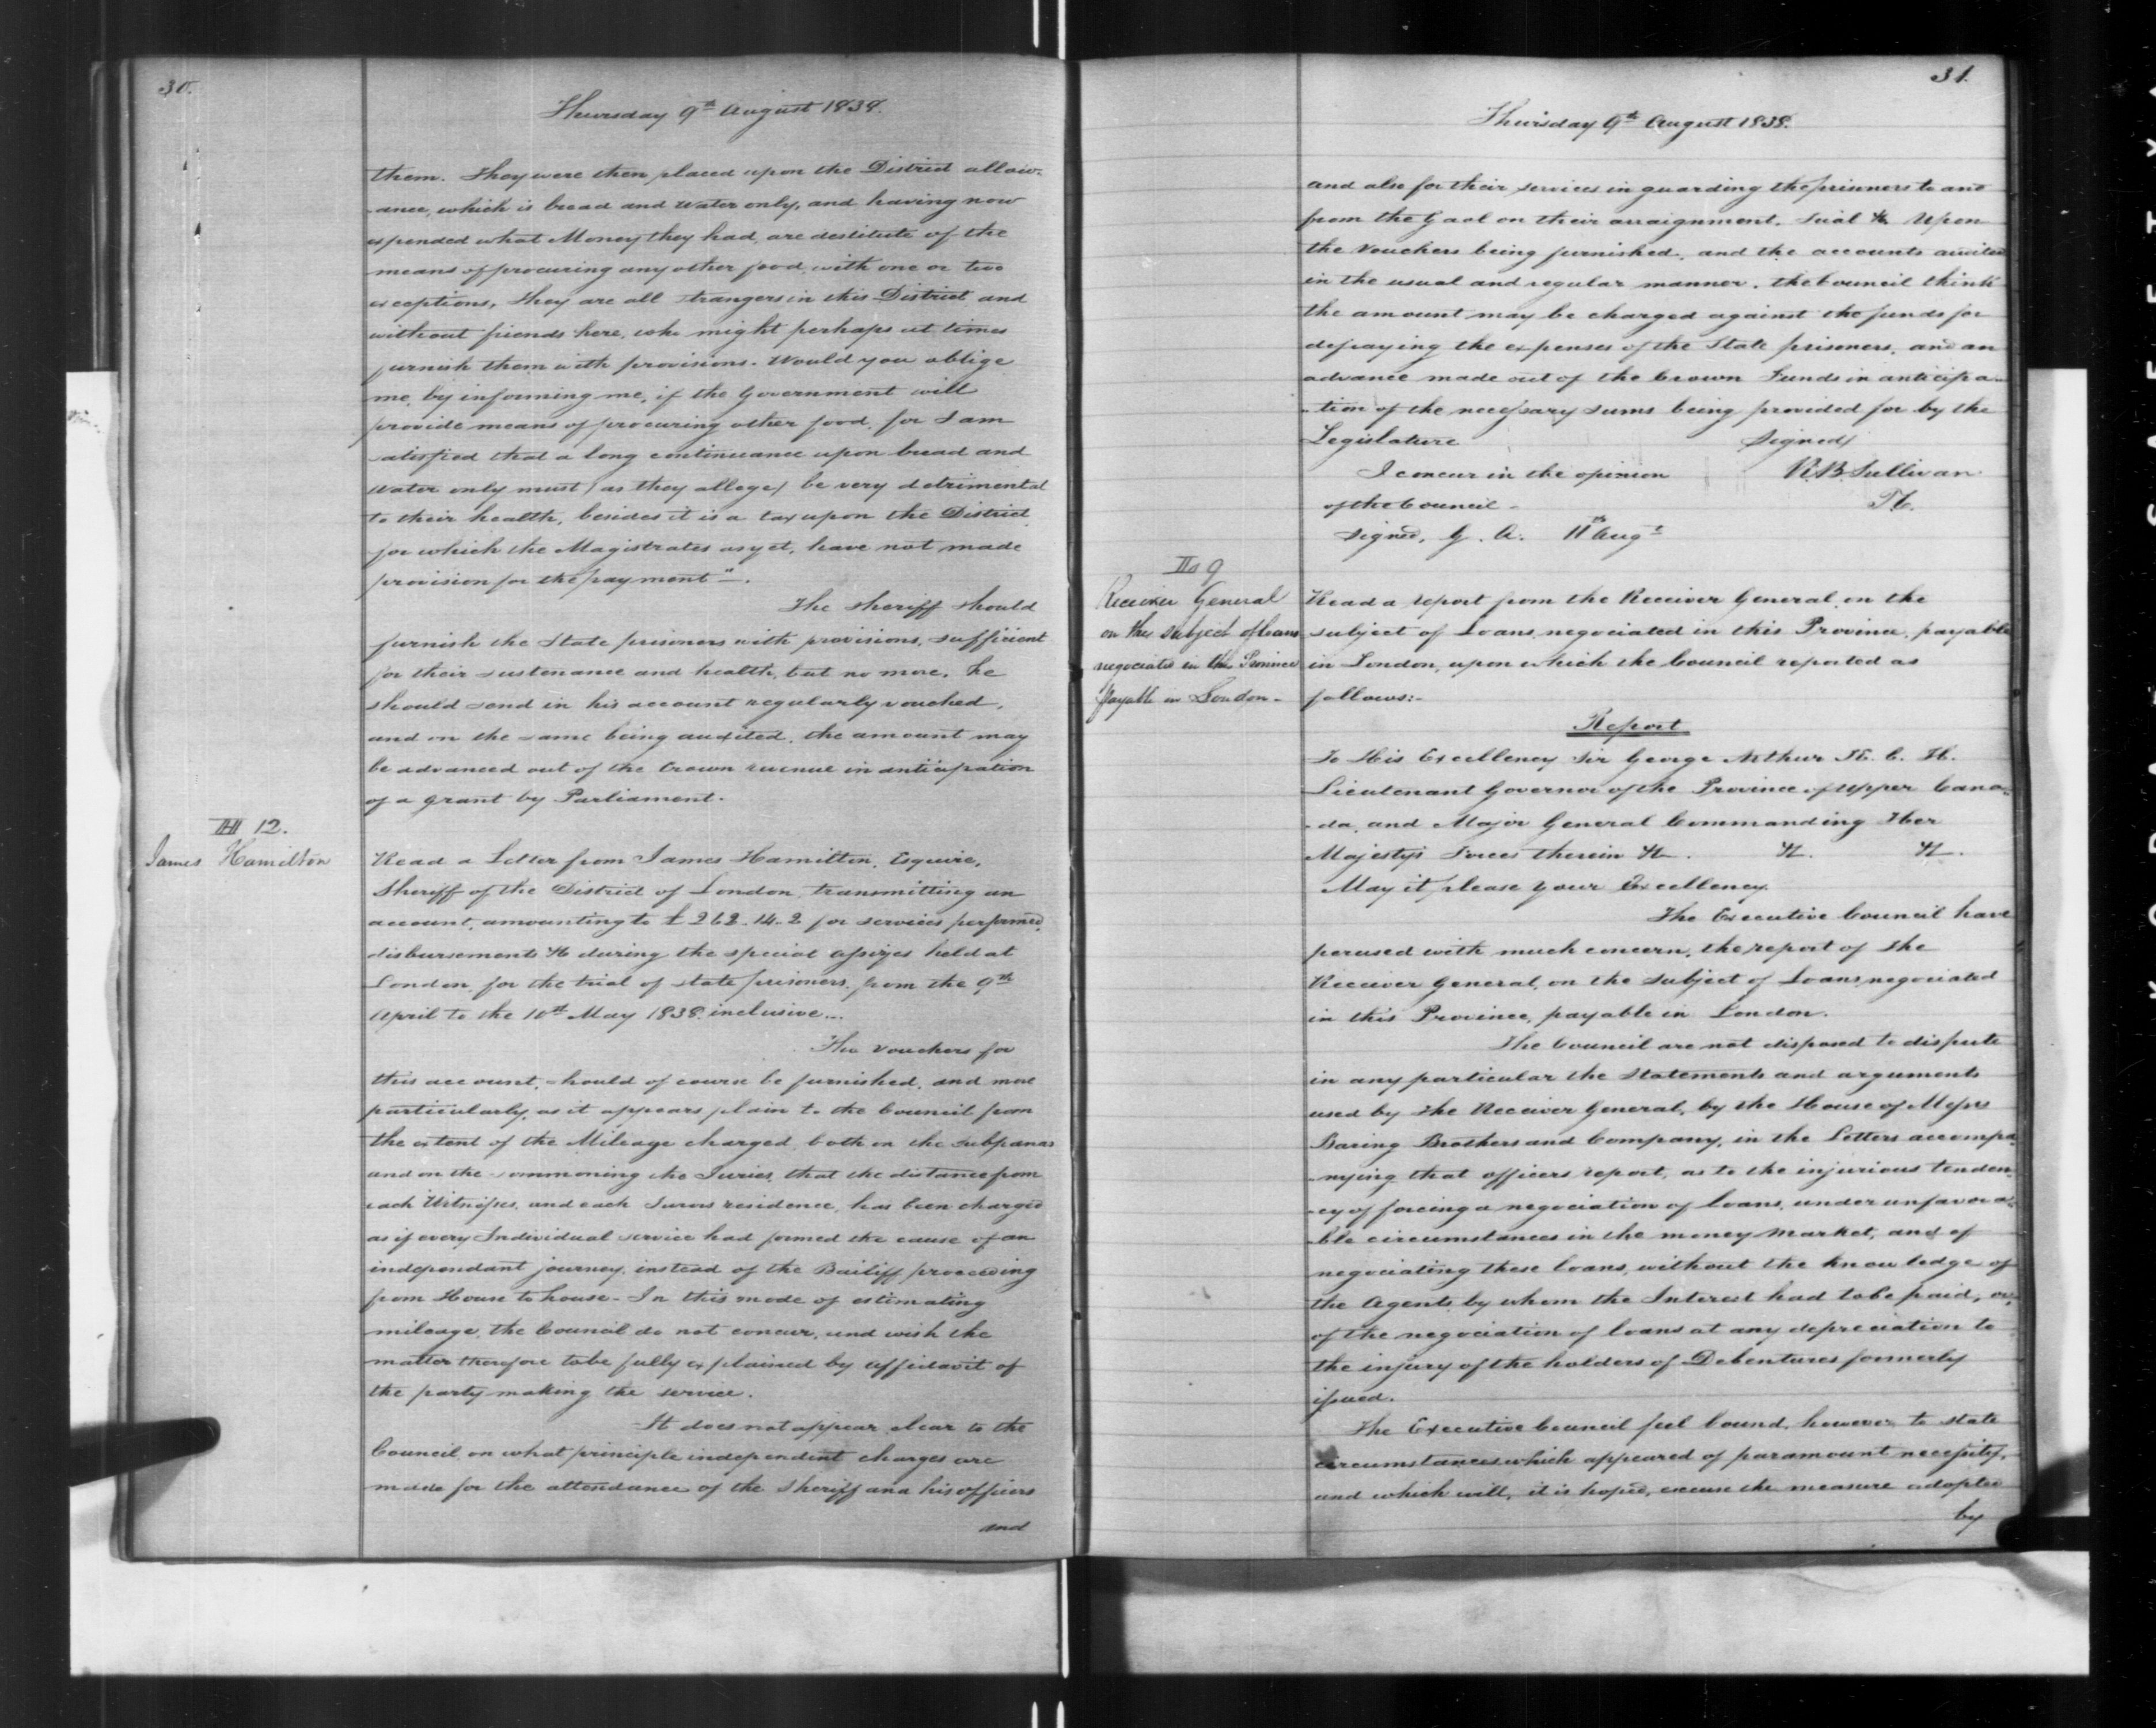 30.
Thursday 9th August 1838.
them. They were then placed upon the District allow-
-ance, which is bread and water only, and having now
expended what Money they had, are destitute of the
means of procuring any other food, with one or two
exceptions, they are all strangers in this District and
without friends here, who might perhaps at times
furnish them with provisions. Would you oblige
me, by informing me, if the Government will
provide means of procuring other food, for I am
satisfied that a long continuance upon bread and
water only must (as they allege) be very detrimental
to their health, besides it is a tax upon the District
for which the Magistrates as yet, have not made
provision for the payment".
The Sheriff should
furnish the State prisoners with provisions, sufficient
for their sustenance and health, but no more. he
should send in his account regularly vouched,
and on the same being audited, the amount may
be advanced out of the Crown revenue in anticipation
of a grant by Parliament.
12.
James Hamilton
Read a Letter from James Hamilton, Esquire,
Sheriff of the District of London, transmitting an
account, amounting to £262.14.2 for services performed,
disbursements &c during the special assizes held at
London, for the trial of state prisoners, from the 9th
April to the 10th May 1838. inclusive...
The vouchers for
this account, should of course be furnished, and more
particularly, as it appears plain to the Council from
the extent of the Mileage charged both on the subpœnas
and on the summoning the Juries, that the distance from
each Witnesses, and each Jurors residence, has been charged
as if every Individual service had formed the cause of an
independant journey, instead of the Bailiff proceeding
from House to house - In this mode of estimating
mileage, the Council do not concur, and wish the
matter therefore to be fully explained by affidavit of
the party making the service.
It does not appear clear to the
Council on what principle independent charges are
made for the attendance of the Sheriff and his officers
and
31.
Thursday 9th August 1838.
and also for their services in guarding the prisoners to and
from the Gaol on their arraignment, trial &c. Upon
the Vouchers being furnished, and the accounts audited
in the usual and regular manner, the Council think
the amount may be charged against the funds for
defraying the expenses of the State prisoners, and an
advance made out of the Crown Funds in anticipa-
-tion of the necessary sums being provided for by the
Legislature
Signed/
I concur in the opinion
R.B. Sullivan
of the Council -
P.C.
Signed, G. A. 11th Augt
9
Receiver General
on the subject of loans
negociated in this Province
payable in London -
Read a report from the Receiver General, on the
subject of Loans, negociated in this Province, payable
in London, upon which the Council reported as
follows:-
Report
To His Excellency Sir George Arthur K. C. H.
Lieutenant Governor of the Province of Upper Cana-
-da, and Major General Commanding Her
Majesty's Forces therein &c. &c. &c.
May it please your Excellency.
The Executive Council have
perused with much concern, the report of the
Receiver General, on the subject of Loans, negociated
in this Province, payable in London.
The Council are not disposed to dispute
in any particular the Statements and arguments
used by the Receiver General, by the House of Messrs
Baring Brothers and Company, in the Letters accompa-
-nying that officers report, as to the injurious tenden-
-cy of forcing a negociation of loans, under unfavora-
-ble circumstances in the money Market, and of
negociating these loans, without the knowledge of
the Agents by whom the Interest had to be paid, or
of the negociation of loans at any depreciation to
the injury of the holders of Debentures formerly
issued.
The Executive Council feel bound, however, to state
circumstances which appeared of paramount necessity,
and which will, it is hoped, excuse the measure adopted
by